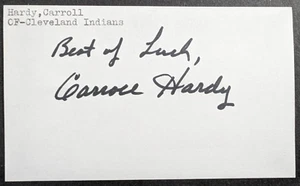 Hardy,Carroll
OF-Cleveland Indians
Best of Luck,
Carroll Hardy